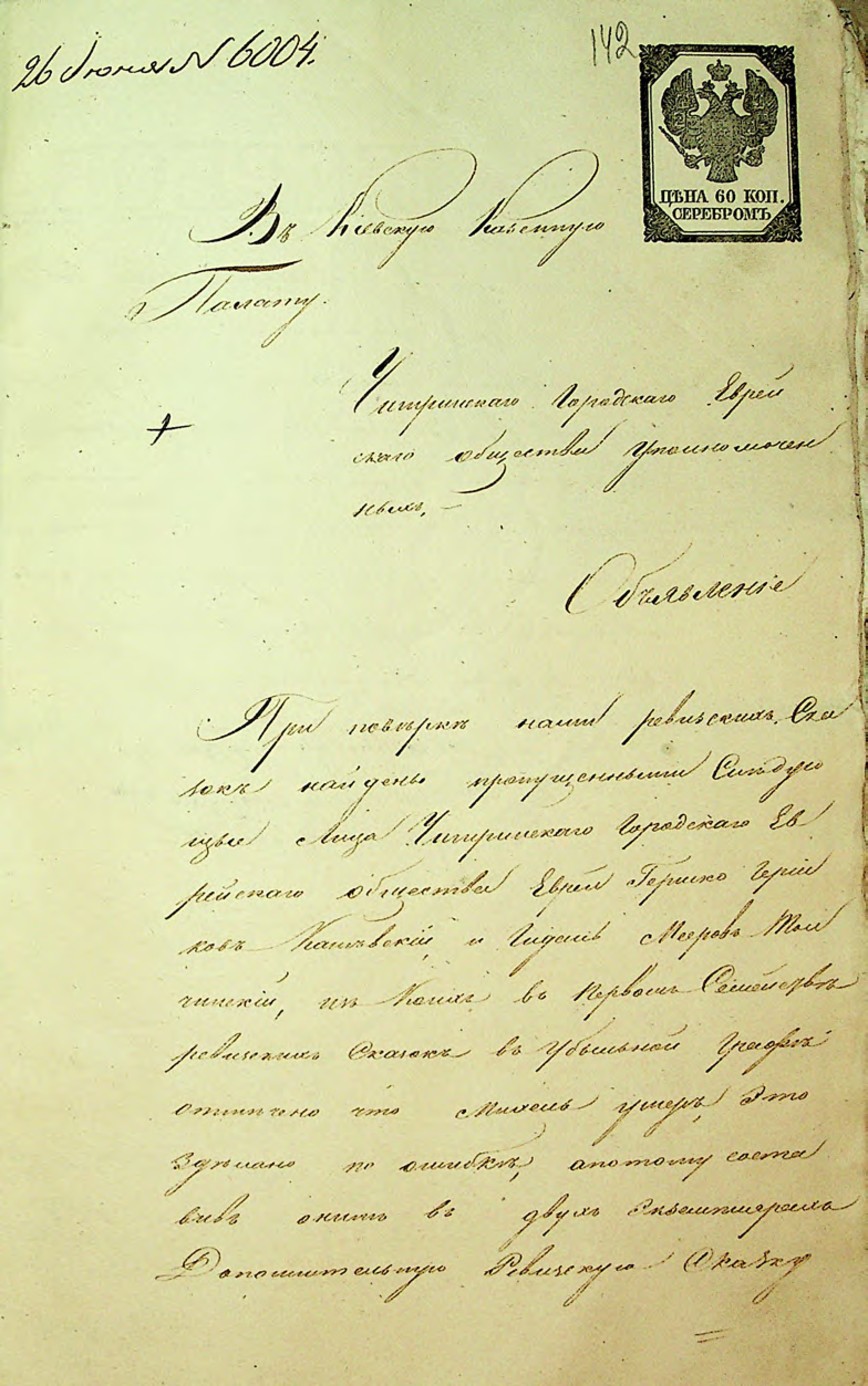 26 Июня N 6004.
142
ЦѢНА 60 КОП.
СЕРЕБРОМЪ
Въ Кіевскую Казенную
Палату.
Чигринскаго Городскаго Еврей
скаго общества Уполномочен
ныхъ, –
Объявленіе
При повѣркѣ нами ревизскихъ Ска
зокъ найдены пропущенными Слѣдую
щые Лица Чигринскаго Городскаго Ев
рейскаго общества Еврей Гершко Герш
ковъ и Мееровъ
изъ Коихъ въ первомъ Семействѣ
ревизскихъ Сказокъ въ убыльной графѣ
отмѣчено что умеръ, Это
Здѣлано по ошибкѣ, апотому соста
вивъ онимъ въ двухъ Экземплярахъ
Дополнительную Ревизскую Сказку